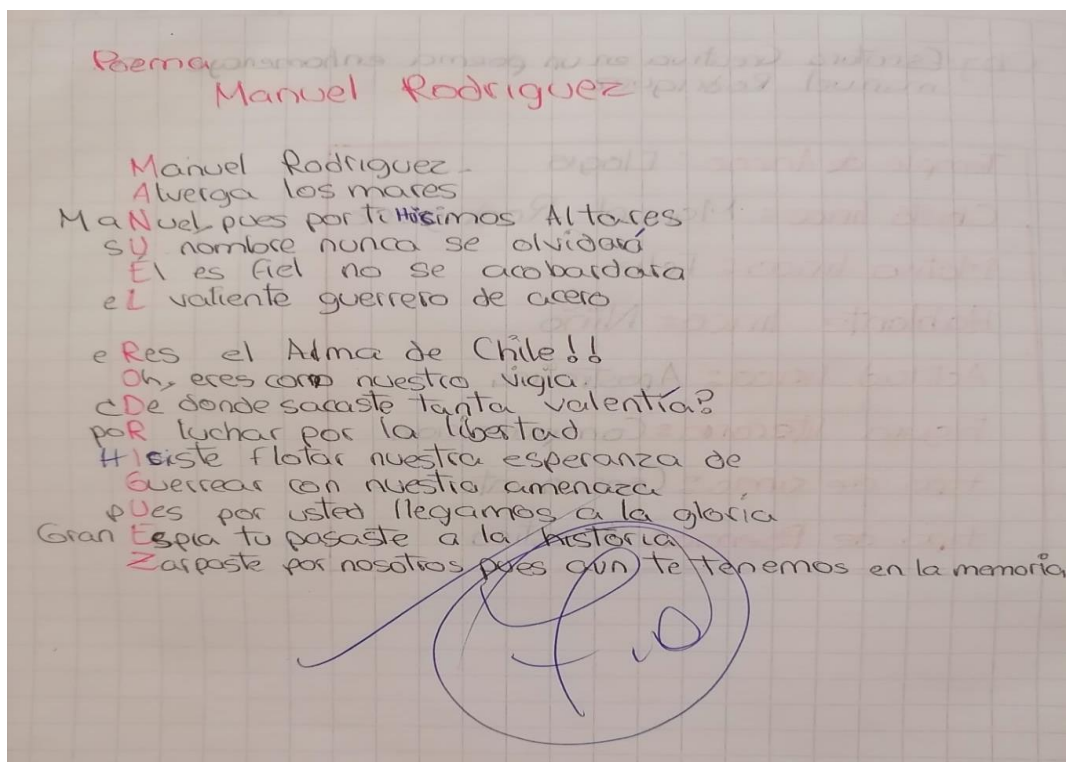 Poema
Manuel Rodriguez
Manuel Rodriguez
Alverga los mares
MaNuel pues por ti Hisimos Altares
sU nombre nunca se olvidará
Él es fiel no se acobardara
eL valiente guerrero de acero
eRes el Alma de Chile!!
Oh, eres como nuestro vigia
¿De donde sacaste tanta valentía?
poR luchar por la libertad
HIsiste flotar nuestra esperanza de
Guerrear con nuestra amenaza
pUes por usted llegamos a la gloria
Gran Espia tu pasaste a la historia
Zarpaste por nosotros pues aun te tenemos en la memoria